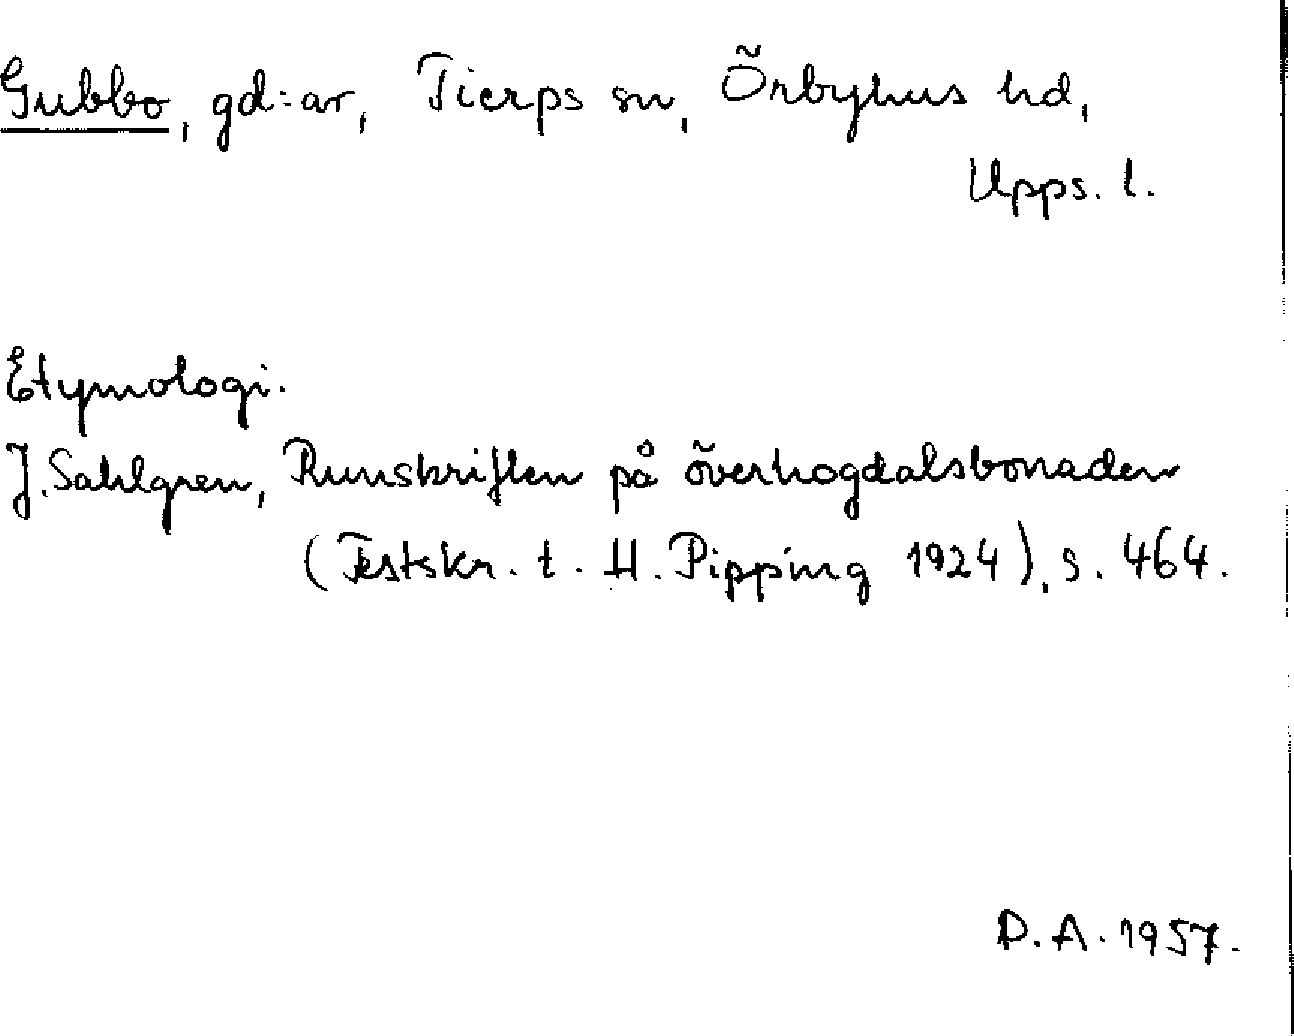 Gubbo, gd:ar, Tierps sn, Örbyhus hd,
Upps. l.
Etymologi.
J. Sahlgren, Runskriften på överhogdalsbonaden
(Festskr. t. H. Pipping 1924), s. 464.
D.A. 1957.